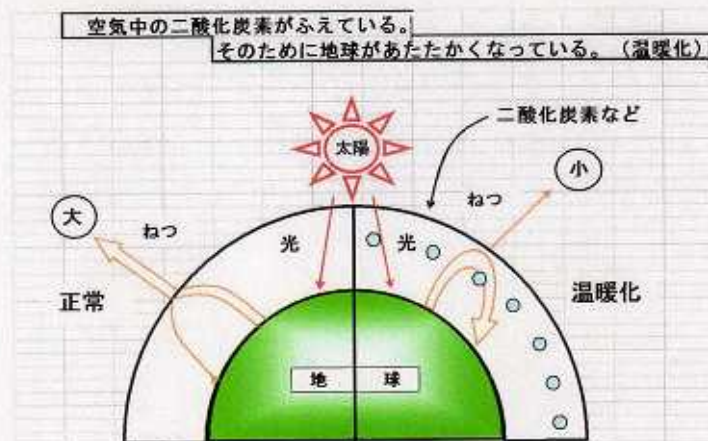 空気中の二酸化炭素がふえている。
そのために地球があたたかくなっている。（温暖化）
二酸化炭素など
太陽
小
大
ねつ
ねつ
光
光
正常
温暖化
地球